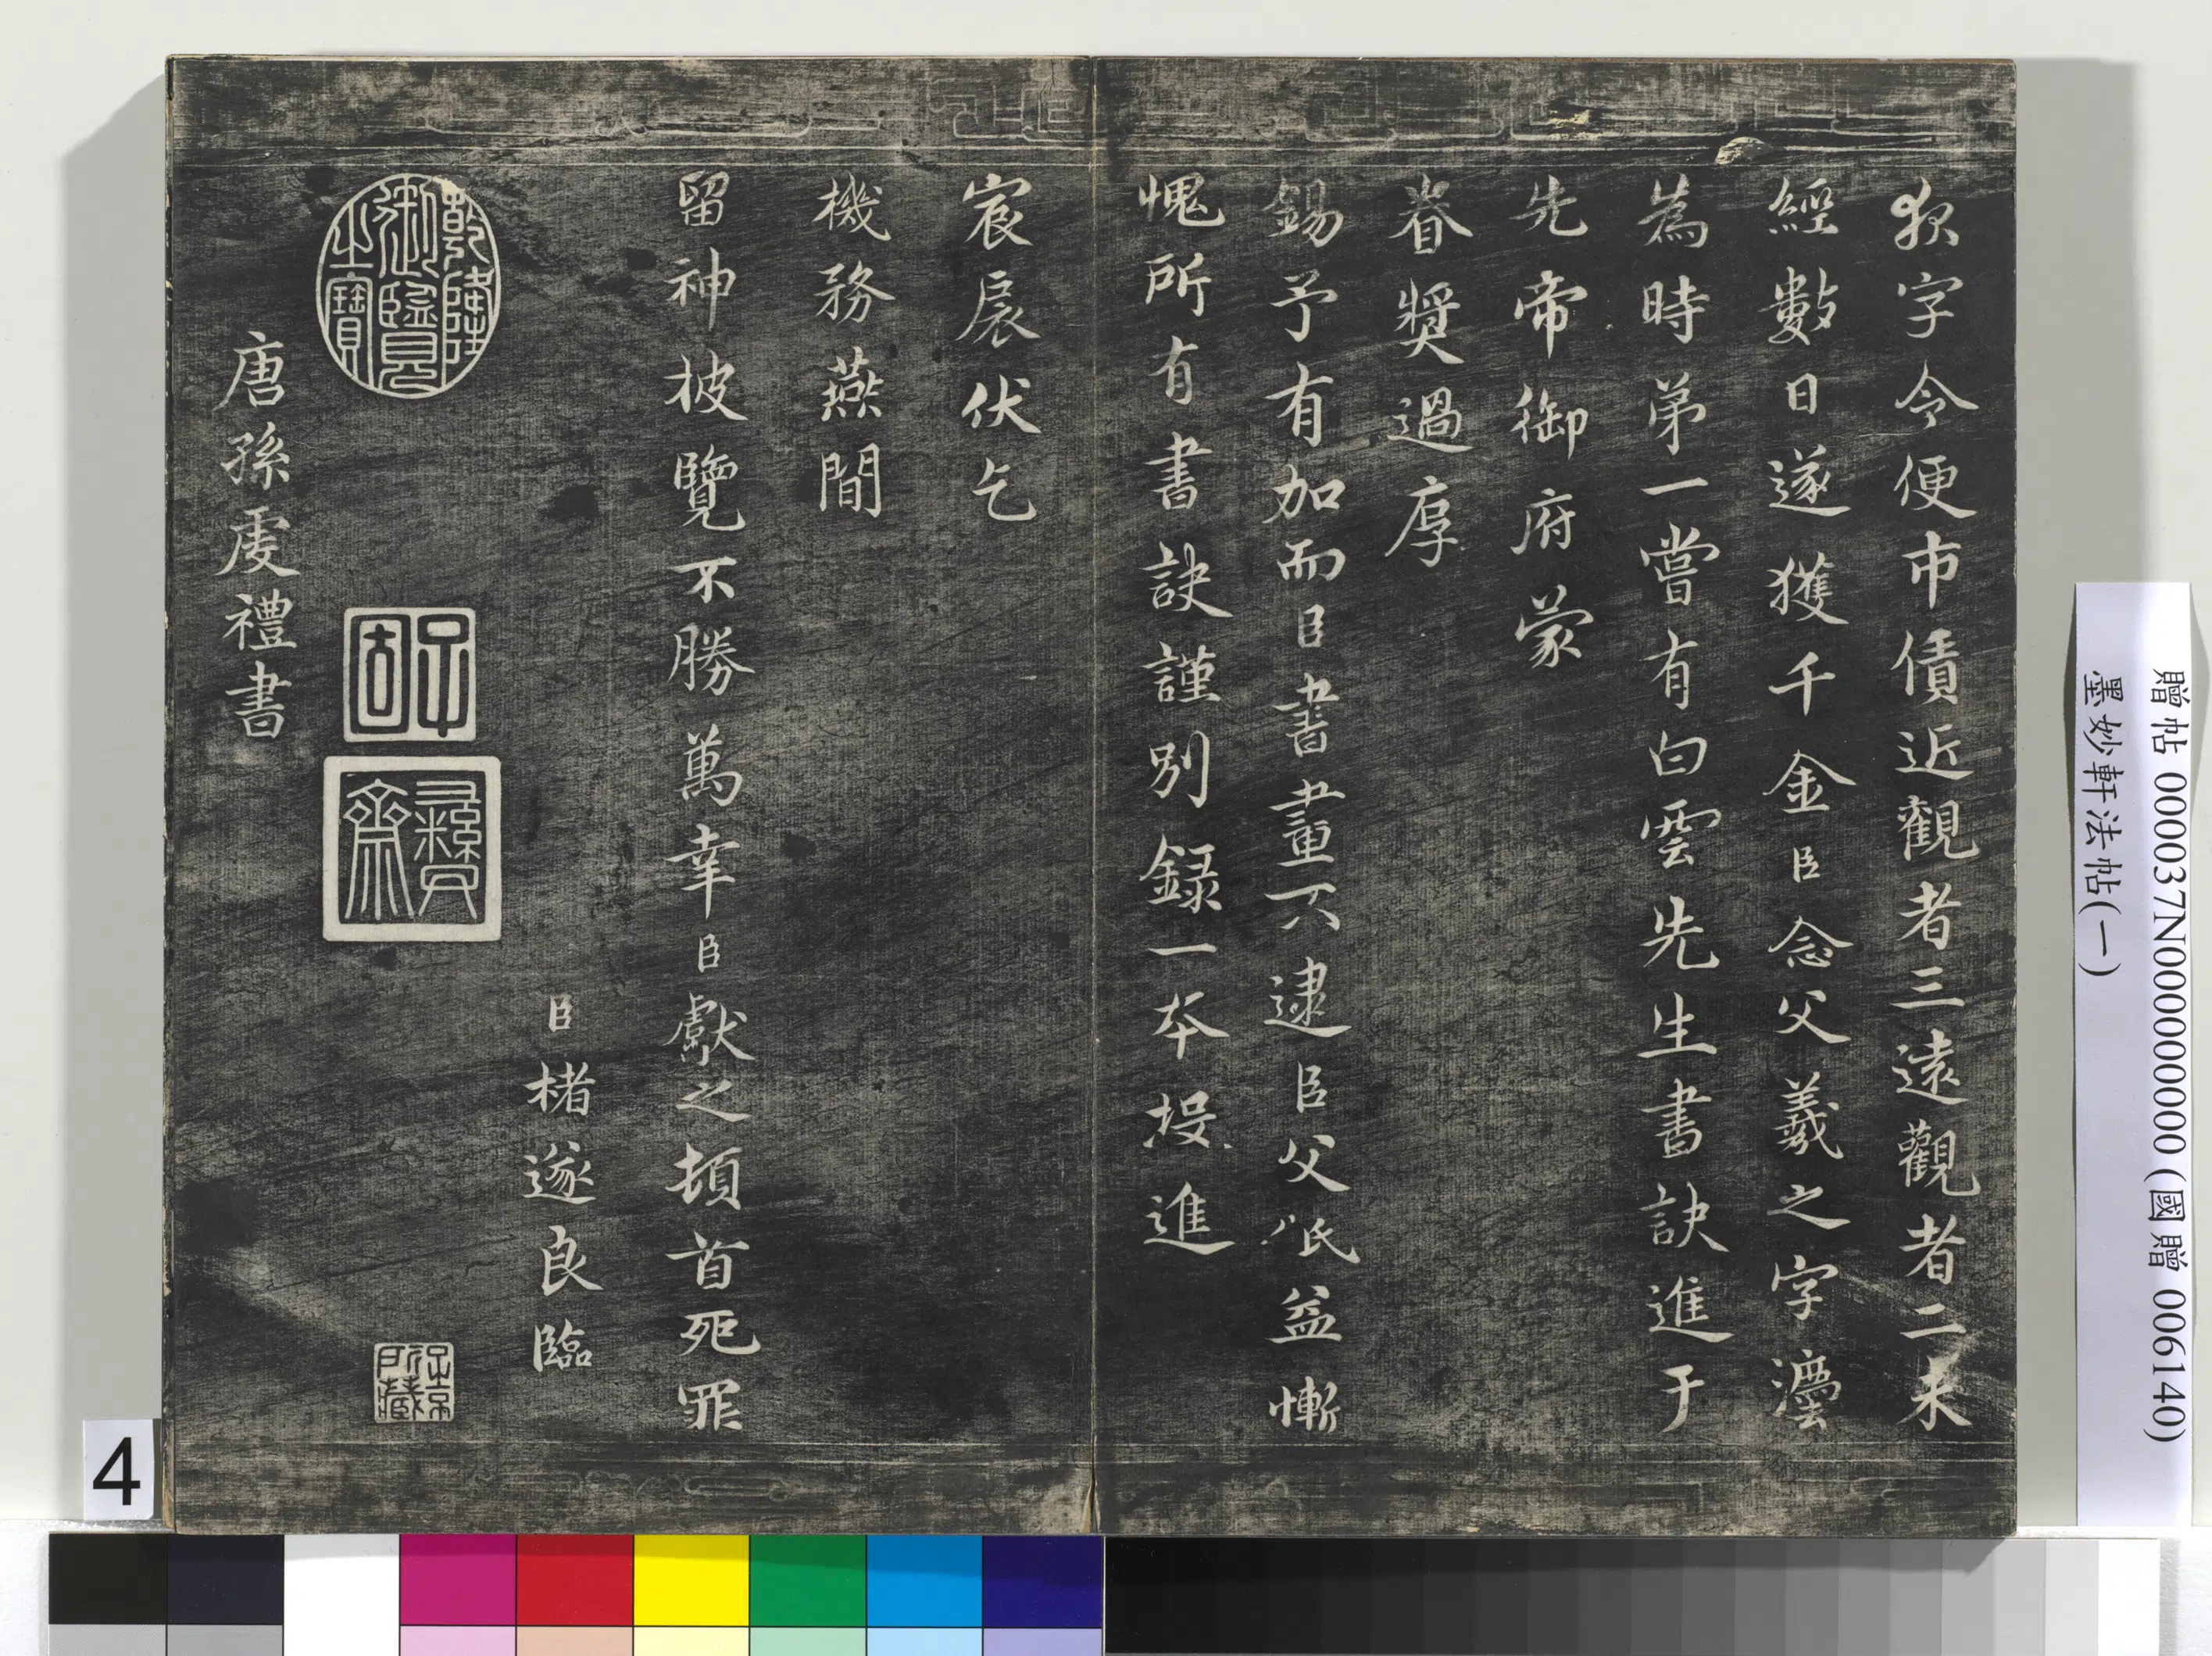 狄字令便市債近觀者三遠觀者二未
經數日遂獲千金臣念父羲之字灋
為時弟一嘗有白雲先生書訣進于
先帝御府蒙
眷獎過厚
錫予有加而臣書畫不逮臣父祇益慚
愧所有書訣謹別録一本投進
宸扆伏乞
機務燕間
留神披覽不勝萬幸臣獻之頓首死罪
臣楮遂良臨
乾隆
御覽
之寶
子
固
彝
齋
子京
所藏
唐孫虔禮書
贈帖 000037N000000000 (國贈 006140)
墨妙軒法帖(一)
4